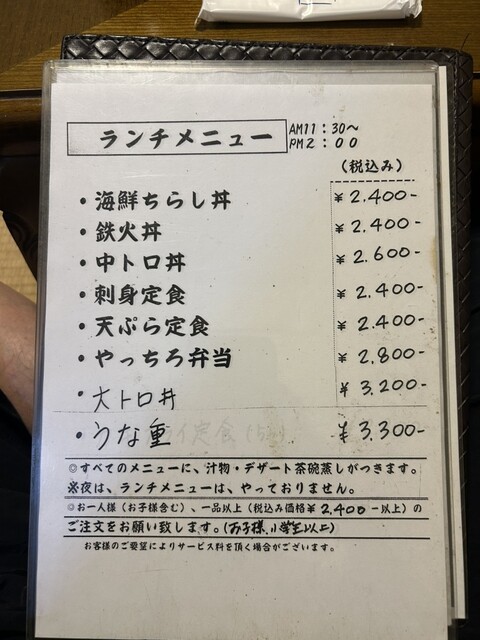 ランチメニュー AM11：30～
PM2：00
(税込み)
・海鮮ちらし丼 ¥2.400-
・鉄火丼 ¥2.400-
・中トロ丼 ¥2.600-
・刺身定食 ¥2.400-
・天ぷら定食 ¥2.400-
・やっちろ弁当 ¥2.800-
・大トロ丼 ¥3.200-
・うな重 ¥3.300-
◎すべてのメニューに、汁物・デザート茶碗蒸しがつきます。
※夜は、ランチメニューは、やっておりません。
◎お一人様（お子様含む）、一品以上（税込み価格¥2,400-以上）の
ご注文をお願い致します。(お子様、小学生以上)
お客様のご要望によりサービス料を頂く場合がございます。